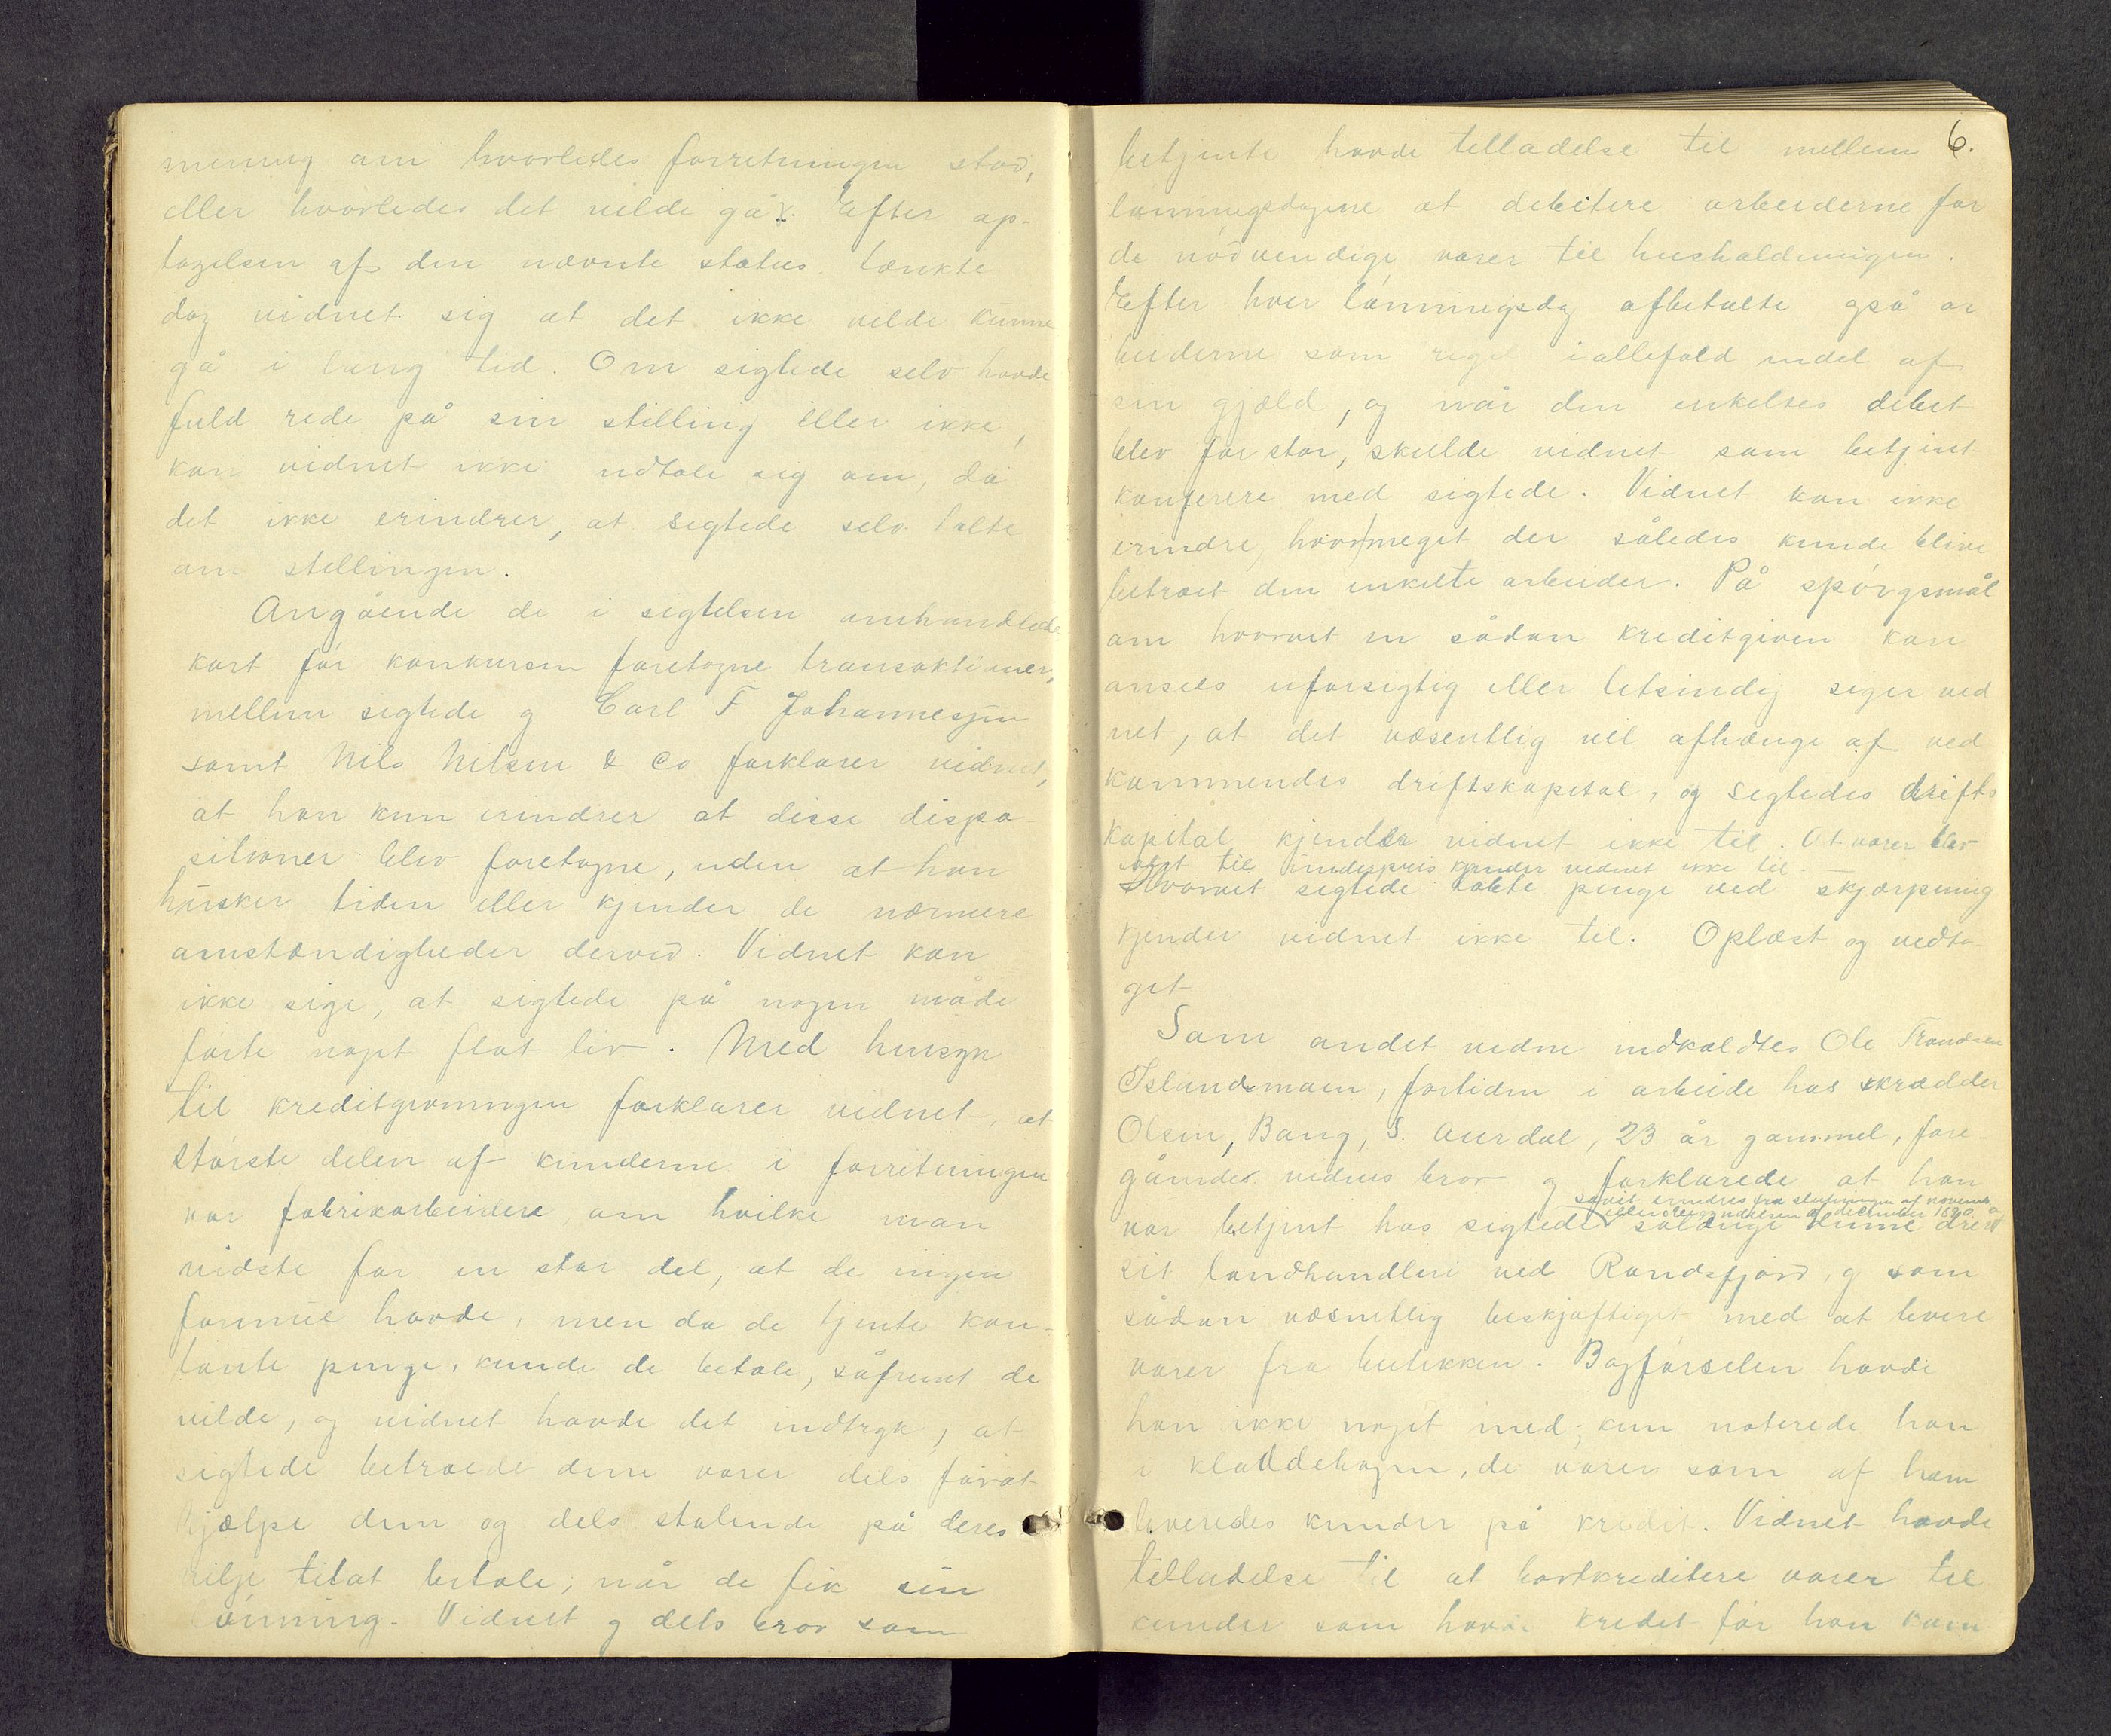 mening om hvorledes forretningen stod,
eller hvorledes det vilde gå. Efter op-
tagelsen af den nævnte status tænkte
dog vidnet sig at det ikke vilde kunne
gå i lang tid. Om sigtede selv havde
fuld rede på sin stilling eller ikke,
kan vidnet ikke udtale sig om, da
det ikke erindrer, at sigtede selv talte
om stillingen.
Angående de i sigtelsen omhandlede
kort før konkursen foretagne transaktioner,
mellem sigtede og Carl F Johannesen
samt Nils Nilsen & Co forklarer vidnet,
at han kun erindrer at disse dispo-
sitioner blev foretagne, uden at han
husker tiden eller kjender de nærmere
omstændigheder derved. Vidnet kan
ikke sige, at sigtede på nogen måde
førte noget flot liv. Med hensyn
til kreditgivningen forklarer vidnet, at
største delen af kunderne i forretningen
var fabrikarbeidere, om hvilke man
vidste for en stor del, at de ingen
formue havde, men da de tjente kon-
tante penge, kunde de betale, såfremt de
vilde, og vidnet havde det indtryk, at
sigtede betroede dem varer dels forat
hjælpe dem og dels stolende på deres
vilje tilat betale, når de fik sin
lønning. Vidnet og dets bror som
6.
betjente havde tilladelse til mellem
lønningsdagene at debitere arbeiderne for
de nødvendige varer til husholdningen.
Efter hver lønningsdag afbetalte også ar
beiderne som regel iallefald endel af
sin gjæld, og når den enkeltes debet
blev for stor, skulde vidnet som betjent
konferere med sigtede. Vidnet kan ikke
erindre, hvormeget der således kunde blive
betroet den enkelte arbeider. På spørgsmål
om hvorvet en sådan kreditgiven kan
ansees uforsigtig eller letsindig siger vid
net, at det væsentlig vil afhænge af ved
kommendes driftskapital, og sigtedes drifts
kapital kjender vidnet ikke til. At varer blev
solgt til underpris kjender vidnet ikke til.
Hvorvet sigtede tabte penge ved skjærpning
kjender vidnet ikke til. Oplæst og vedta-
get
Som andet vidne indkaldtes Ole Trondsen
Islandsmoen, fortiden i arbeide hos skrædder
Olsen, Bang, S. Aurdal, 23 år gammel, fore-
gåendes vidnes bror og forklarede at han
såvit erindres fra slutningen af novemb
eller begyndelsen af december 1890
var betjent hos sigtede sålænge denne drev
sit landhandleri ved Randsfjord, og som
sådan væsentlig beskjæftiget med at levere
varer fra butikken. Bogførselen havde
han ikke noget med; kun noterede han
i kladdebogen, de varer som af ham
leveredes kunder på kredit. Vidnet havde
tilladelse til at bortkreditere varer til
kunder som havde kredit før han kom